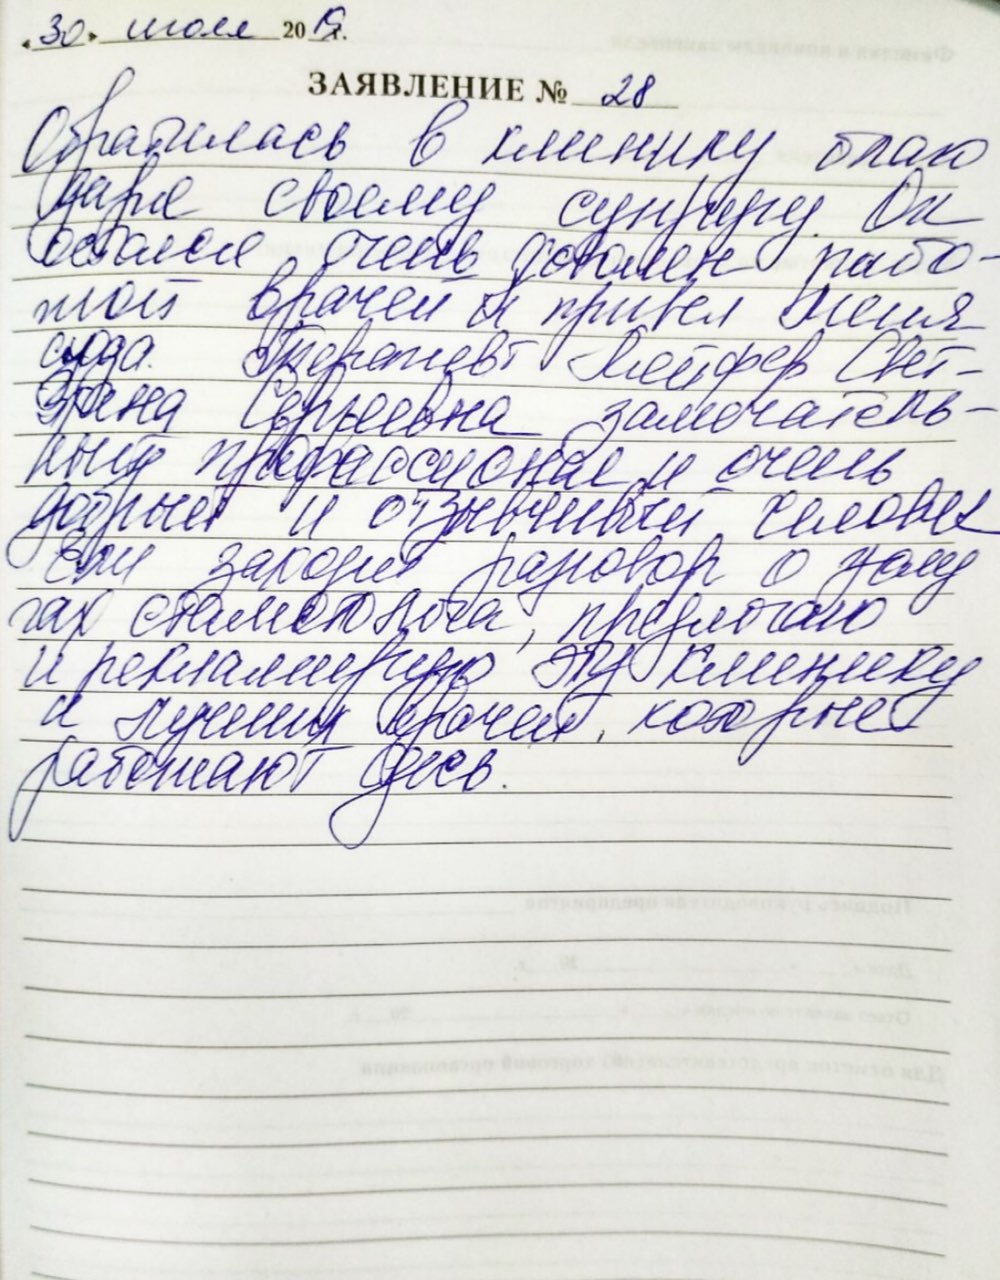 «30» июля 2019г.
ЗАЯВЛЕНИЕ № 28
Обратилась в клинику благо
даря своему супругу. Он
остался очень доволен рабо-
той врачей и привел меня
сюда. Терапевт Клейфер
Сергеевна замечатель-
ный профессионал и очень
добрый и отзывчивый человек
Если заходит разговор о услу
гах стоматолога, предлагаю
и рекламирую эту клинику
и лучших врачей, которые
работают здесь.